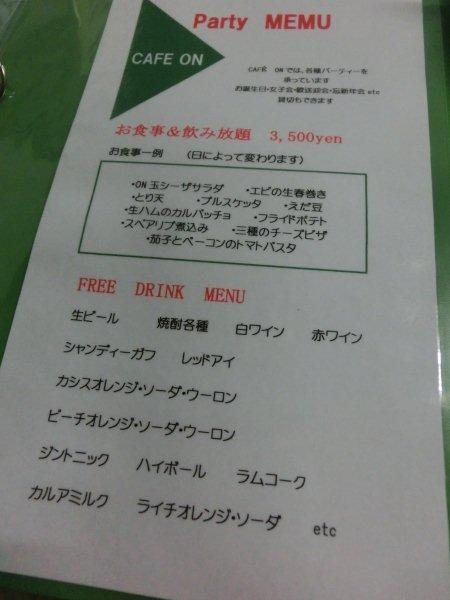 Party MEMU
CAFE ON
CAFÉ ONでは、各種パーティーを
承っています
お誕生日・女子会・歓送迎会・忘新年会etc
貸切もできます
お食事&飲み放題 3,500yen
お食事一例 (日によって変わります)
・ON玉シーザサラダ ・エビの生春巻き
・とり天 ・ブルスケッタ ・えだ豆
・生ハムのカルパッチョ ・フライドポテト
・スペアリブ煮込み ・三種のチーズピザ
・茄子とベーコンのトマトパスタ
FREE DRINK MENU
生ビール 焼酎各種 白ワイン 赤ワイン
シャンディーガフ レッドアイ
カシスオレンジ・ソーダ・ウーロン
ピーチオレンジ・ソーダ・ウーロン
ジントニック ハイボール ラムコーク
カルアミルク ライチオレンジ・ソーダ etc